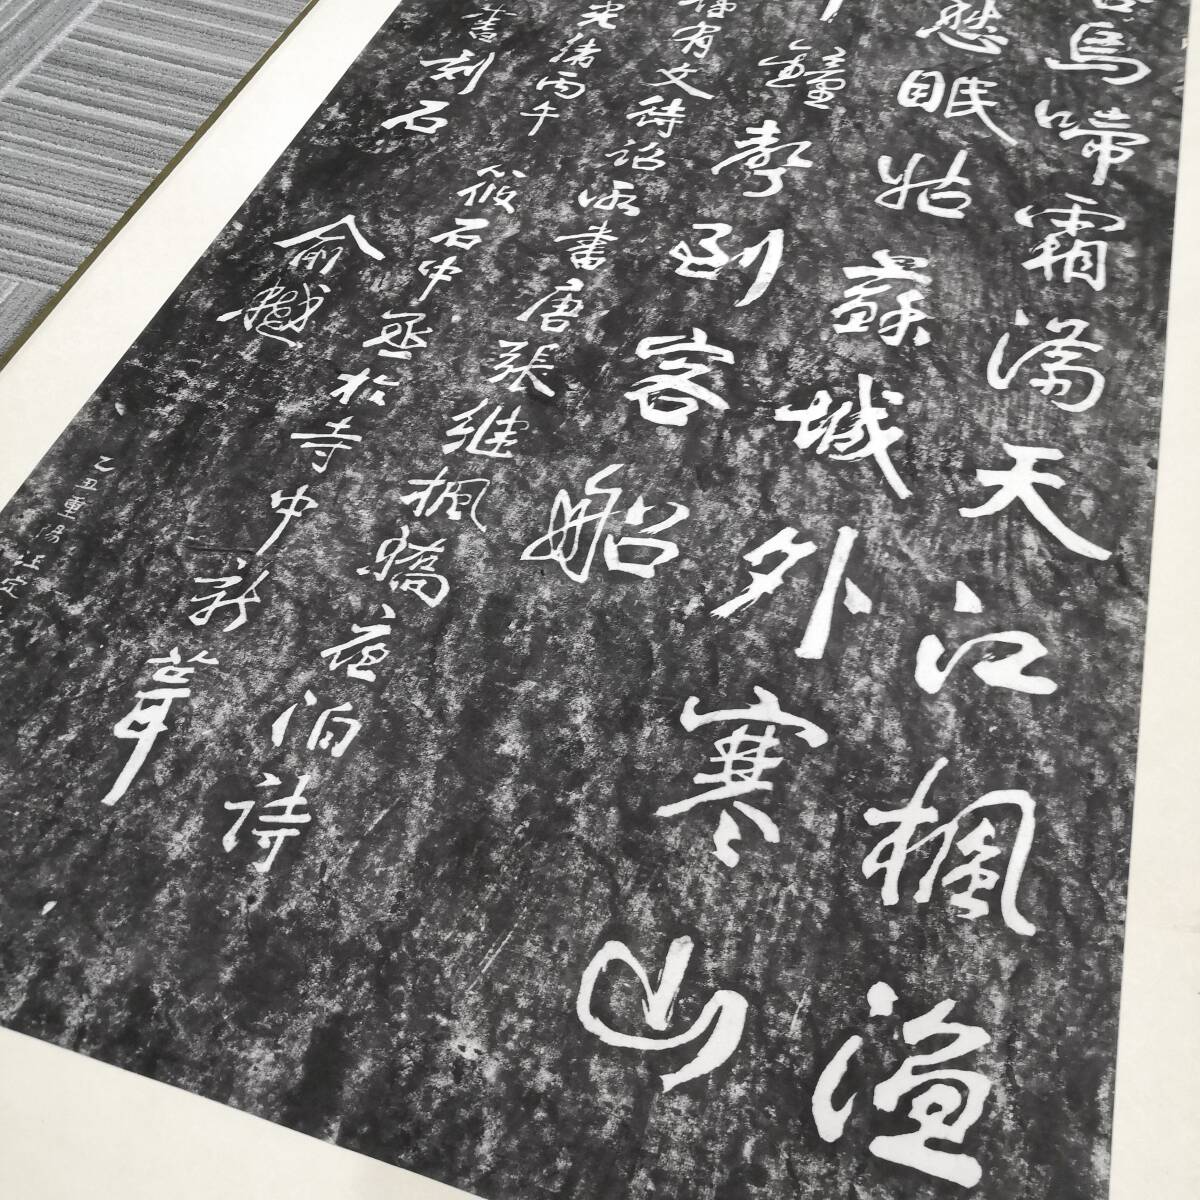 烏啼霜滿天江楓漁
愁眠姑蘇城外寒山
鐘聲到客船
有文待詔所書唐張繼楓橋夜泊詩
光緒丙午筱石中丞於寺中新葺
書刻石俞樾
乙丑重陽